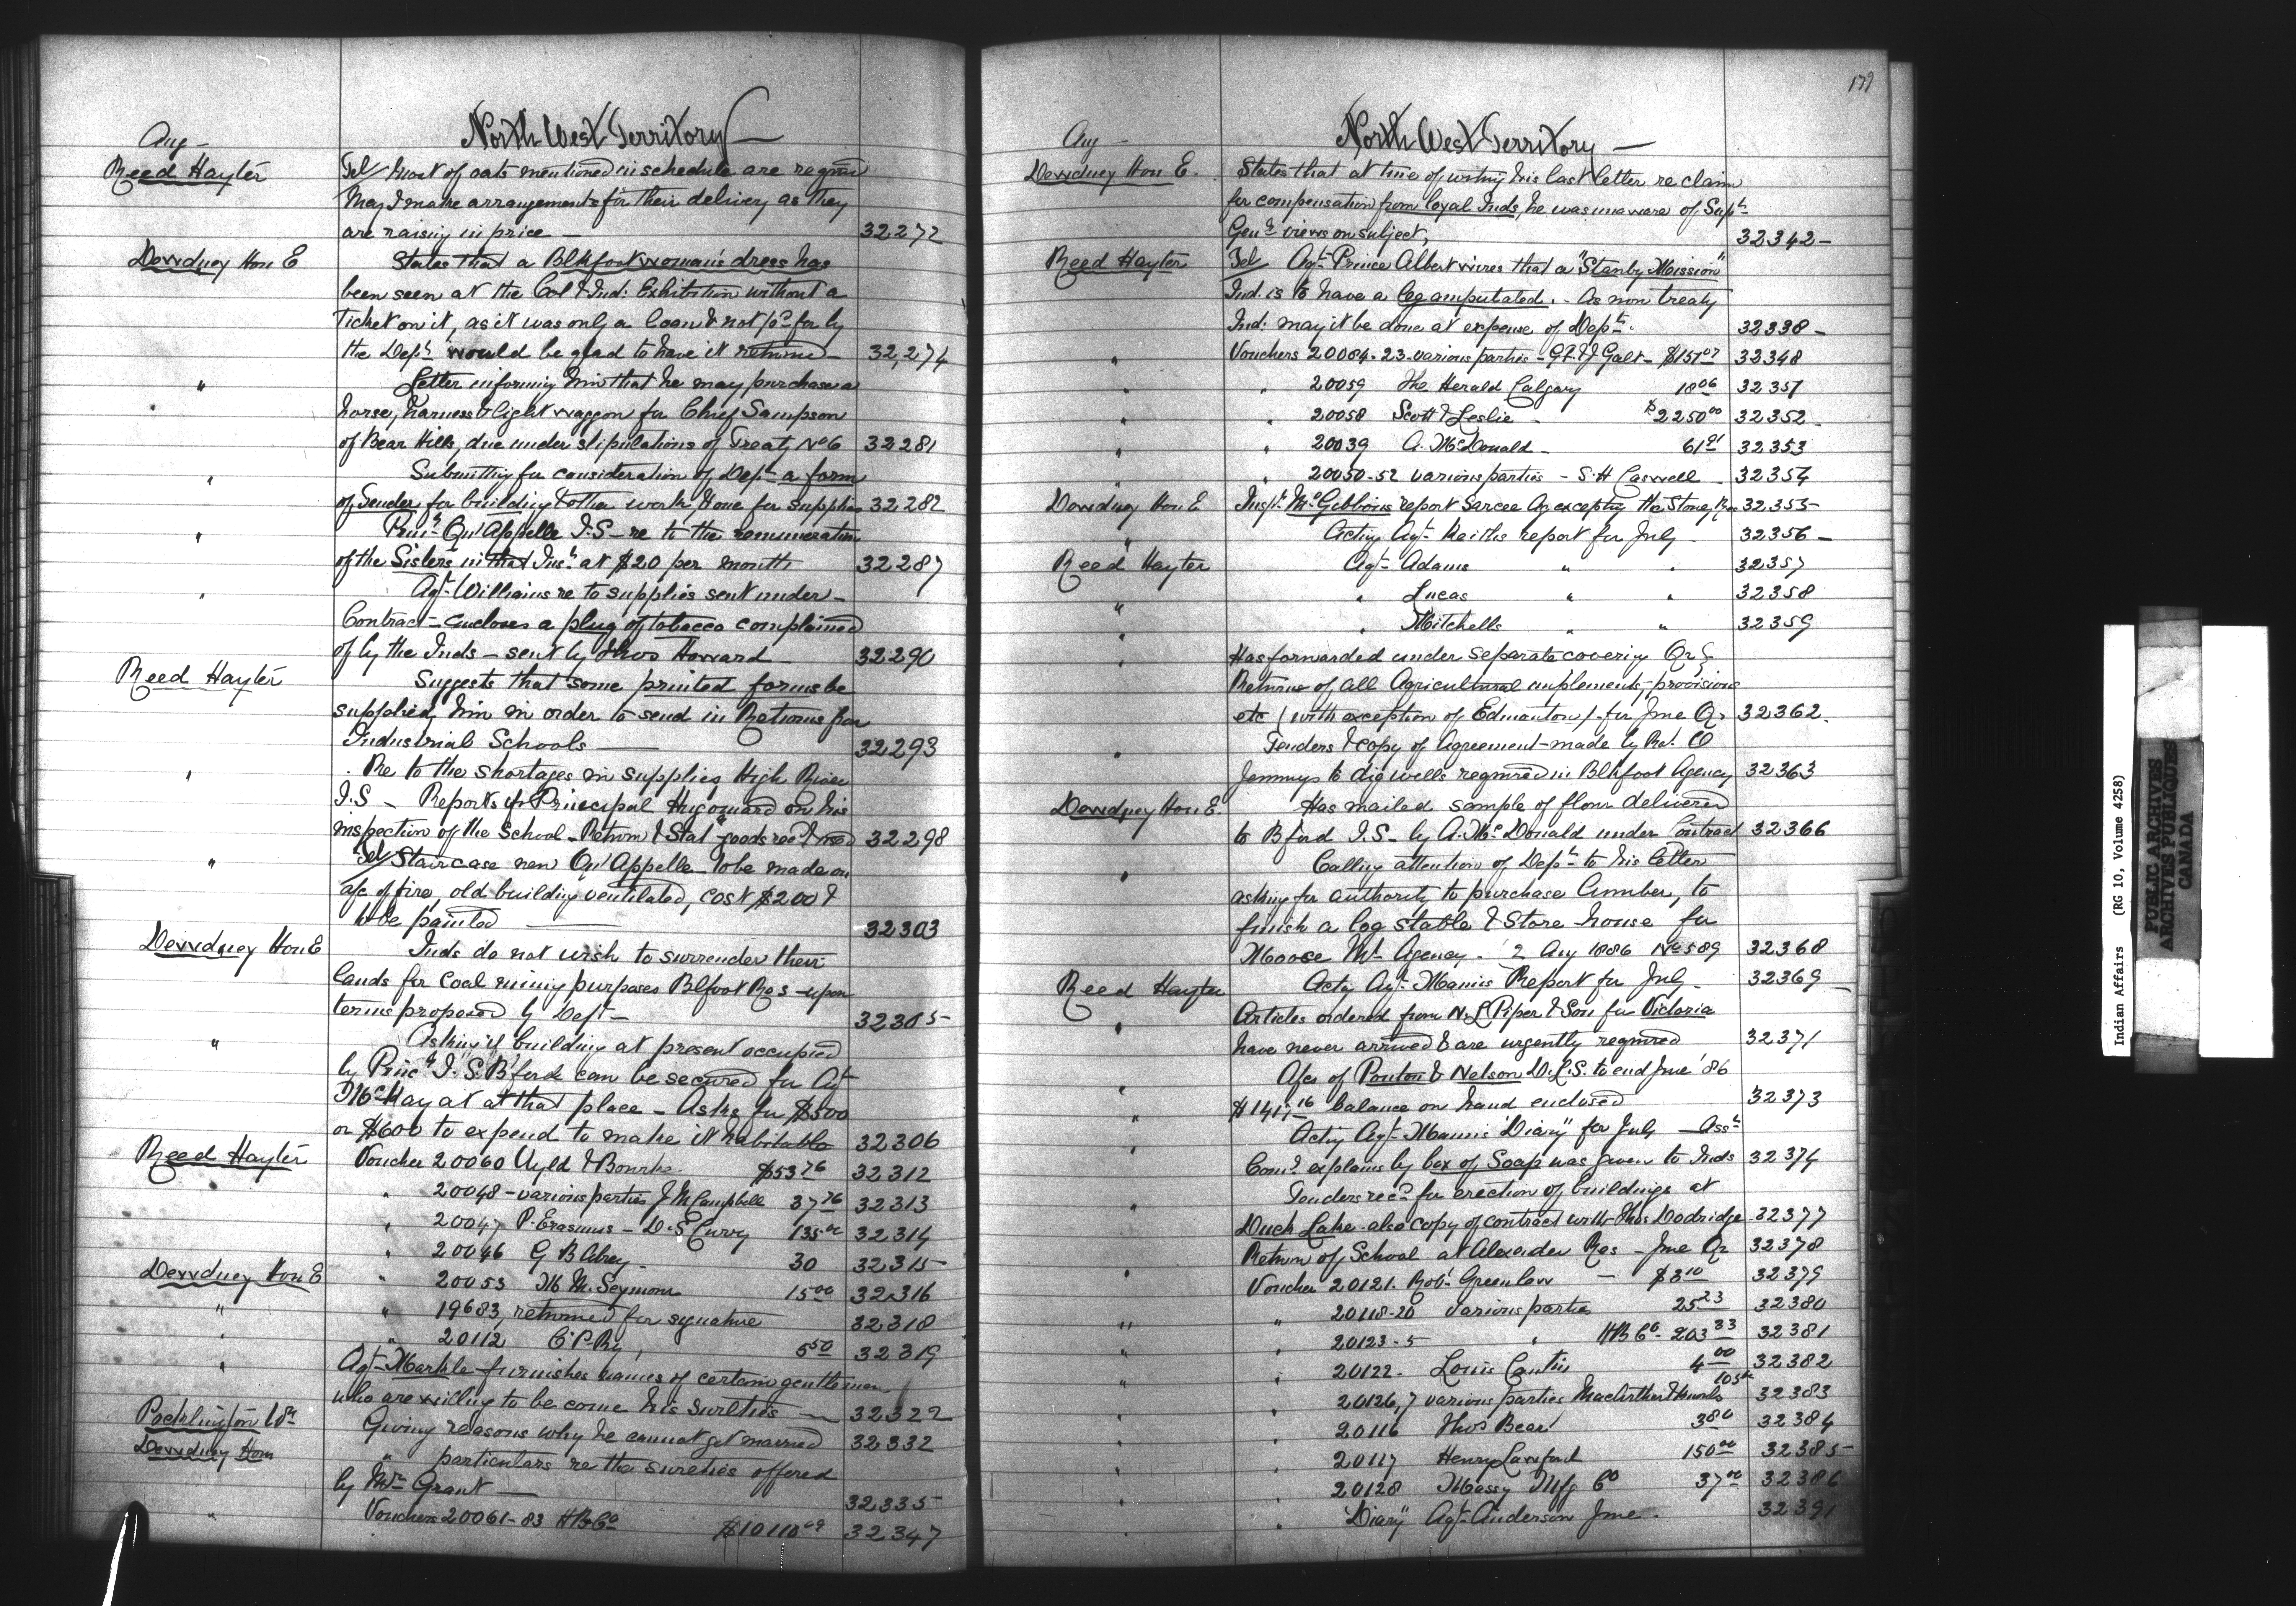 Aug -
North West Territory -
Reed Hayter
Tel/ Most of oats mentioned in schedule are required
May I make arrangements for their delivery as they
are raising in price - 32272
Dewdney Hon E
States that a Blkfoot woman's dress has
been seen at the Col & Ind: Exhibition without a
Ticket on it, as it was only a loan & not pd for by
the Dept would be glad to have it returned - 32,274
" Letter informing him that he may purchase a
horse, harness & light waggon for Chief Sampson
of Bear Hills, due under stipulations of Treaty No 6 32281
" Submitting for consideration of Dept a form
of Tender for building & other work, & one for supplies 32282
" Prinl Qu'Appelle I.S - re to the remuneration
of the Sisters in that Insn at $20 per month 32287
" Agt Williams re to supplies sent under -
Contract - encloses a plug of tobacco complained
of by the Inds - sent by Thos Howard - 32290
Reed Hayter
Suggests that some printed forms be
supplied him in order to send in Returns from
Industrial Schools - 32293
" Re to the shortages in supplies High River
I.S - Reports of Principal Hugonard on his
inspection of the School - Return & Stat goods recd & used 32298
" Tel/ Staircase new Qu'Appelle to be made on
a/c of fire, old building ventilated, cost $200 &
to be painted - 32303
Dewdney Hon E
Inds do not wish to surrender their
lands for coal mining purposes Blfoot Res - upon
terms proposed by Dept - 32305
" Asking if building at present occupied
by Princl I.S. B'ford can be secured for Agt
McKay at at that place - Asks for $500
or $600 to expend to make it habitable 32306
Reed Hayter
Voucher 20060 Uyld & Bourke $53 76 32312
" 20048 - various parties J M Campbell 37 76 32313
" 20047 P. Erasmus - D. S Curry 135 00 32314
" 20046 G B Abrey - 30 32315
Dewdney Hon E
" 20053 M M. Seymour 15 00 32316
" " 19683, returned for signature 32318
" " 20112 C.P.Ry, 5 50 32319
" Agt Markle furnishes names of certain gentlemen
who are willing to be come his sureties - 32322
Pocklington Wm
Giving reasons why he cannot get married 32332
Dewdney Hon
" particulars re the sureties offered
by Mr Grant - 32335
" Vouchers 20061-83 HBCo $10118 69 32347
179
Aug -
North West Territory -
Dewdney Hon E.
States that at time of writing his last letter re claim
for compensation from loyal Inds, he was unaware of Supt
Genls views on subject, 32342 -
Reed Hayter
Tel/ Agt Prince Albert wires that a "Stanby Mission"
Ind. is to have a leg amputated. - As non treaty
Ind: may it be done at expense of Dept. 32338 -
" Vouchers 20004-23 - various parties - Galt - $151 07 32348
" " 20059 The Herald Calgary 18 06 32351
" " 20058 Scott & Leslie - $2250 00 32352
" " 20039 A. McDonald - 61 91 32353
" " 20050-52 various parties - S.H Caswell 32354
Dewdney Hon E
Inspr McGibbons report Sarcee Ag excepting the Stoney Res 32355
" Acting Agt Keiths report for July - 32356 -
Reed Hayter
Agt Adams " " 32357
" " Lucas " " 32358
" " Mitchells " " 32359
" Has forwarded under separate covering Qr
Returns of all Agricultural implements - provisions
etc (with exception of Edmonton) for June Qr 32362.
" Tenders & copy of Agreement - made by
Jemmys to dig wells required in Blkfoot Agency 32363
Dewdney Hon E.
Has mailed sample of flour delivered
to Bford I.S - by A. McDonald under Contract 32366
" Calling attention of Dept to his letter
asking for authority to purchase lumber, to
finish a log stable & Store house for
Moose Mtn Agency. 2 Aug 1886 No 589 32368
Reed Hayter
Actg Agt Mannis Report for July - 32369 -
" Articles ordered from N.L Piper & Son for Victoria
have never arrived & are urgently required 32371
" A/cs of Ponton & Nelson D.L.S. to end June '86
" $141, 16 balance on hand enclosed 32373
" Acting Agt Mannis "Diary" for July - Asst
Comr explains by box of Soap was given to Inds 32374
" Tenders recd for erection of buildings at
Duck Lake - also copy of contract with Thos Dodridge 32377
Return of School at Alexander Res - June Qr 32378
" Voucher 20121. Robt Greenlaw - $3 10 32379
" " 20118-20 various parties 25 23 32380
" " 20123-5 " HB Co - 203 33 32381
" " 20122. Louis Cantin 4 00 32382
" " 20126,7 various parties MacArthur & Knowles 105 32383
" " 20116 Thos Bear 3 80 32384
" " 20117 Henry Lawford 150 00 32385
" " 20128 Massy Mfg Co 37 00 32386
" " "Diary" Agt Anderson June - 32391
Indian Affairs (RG 10, Volume 4258)
PUBLIC ARCHIVES
ARCHIVES PUBLIQUES
CANADA